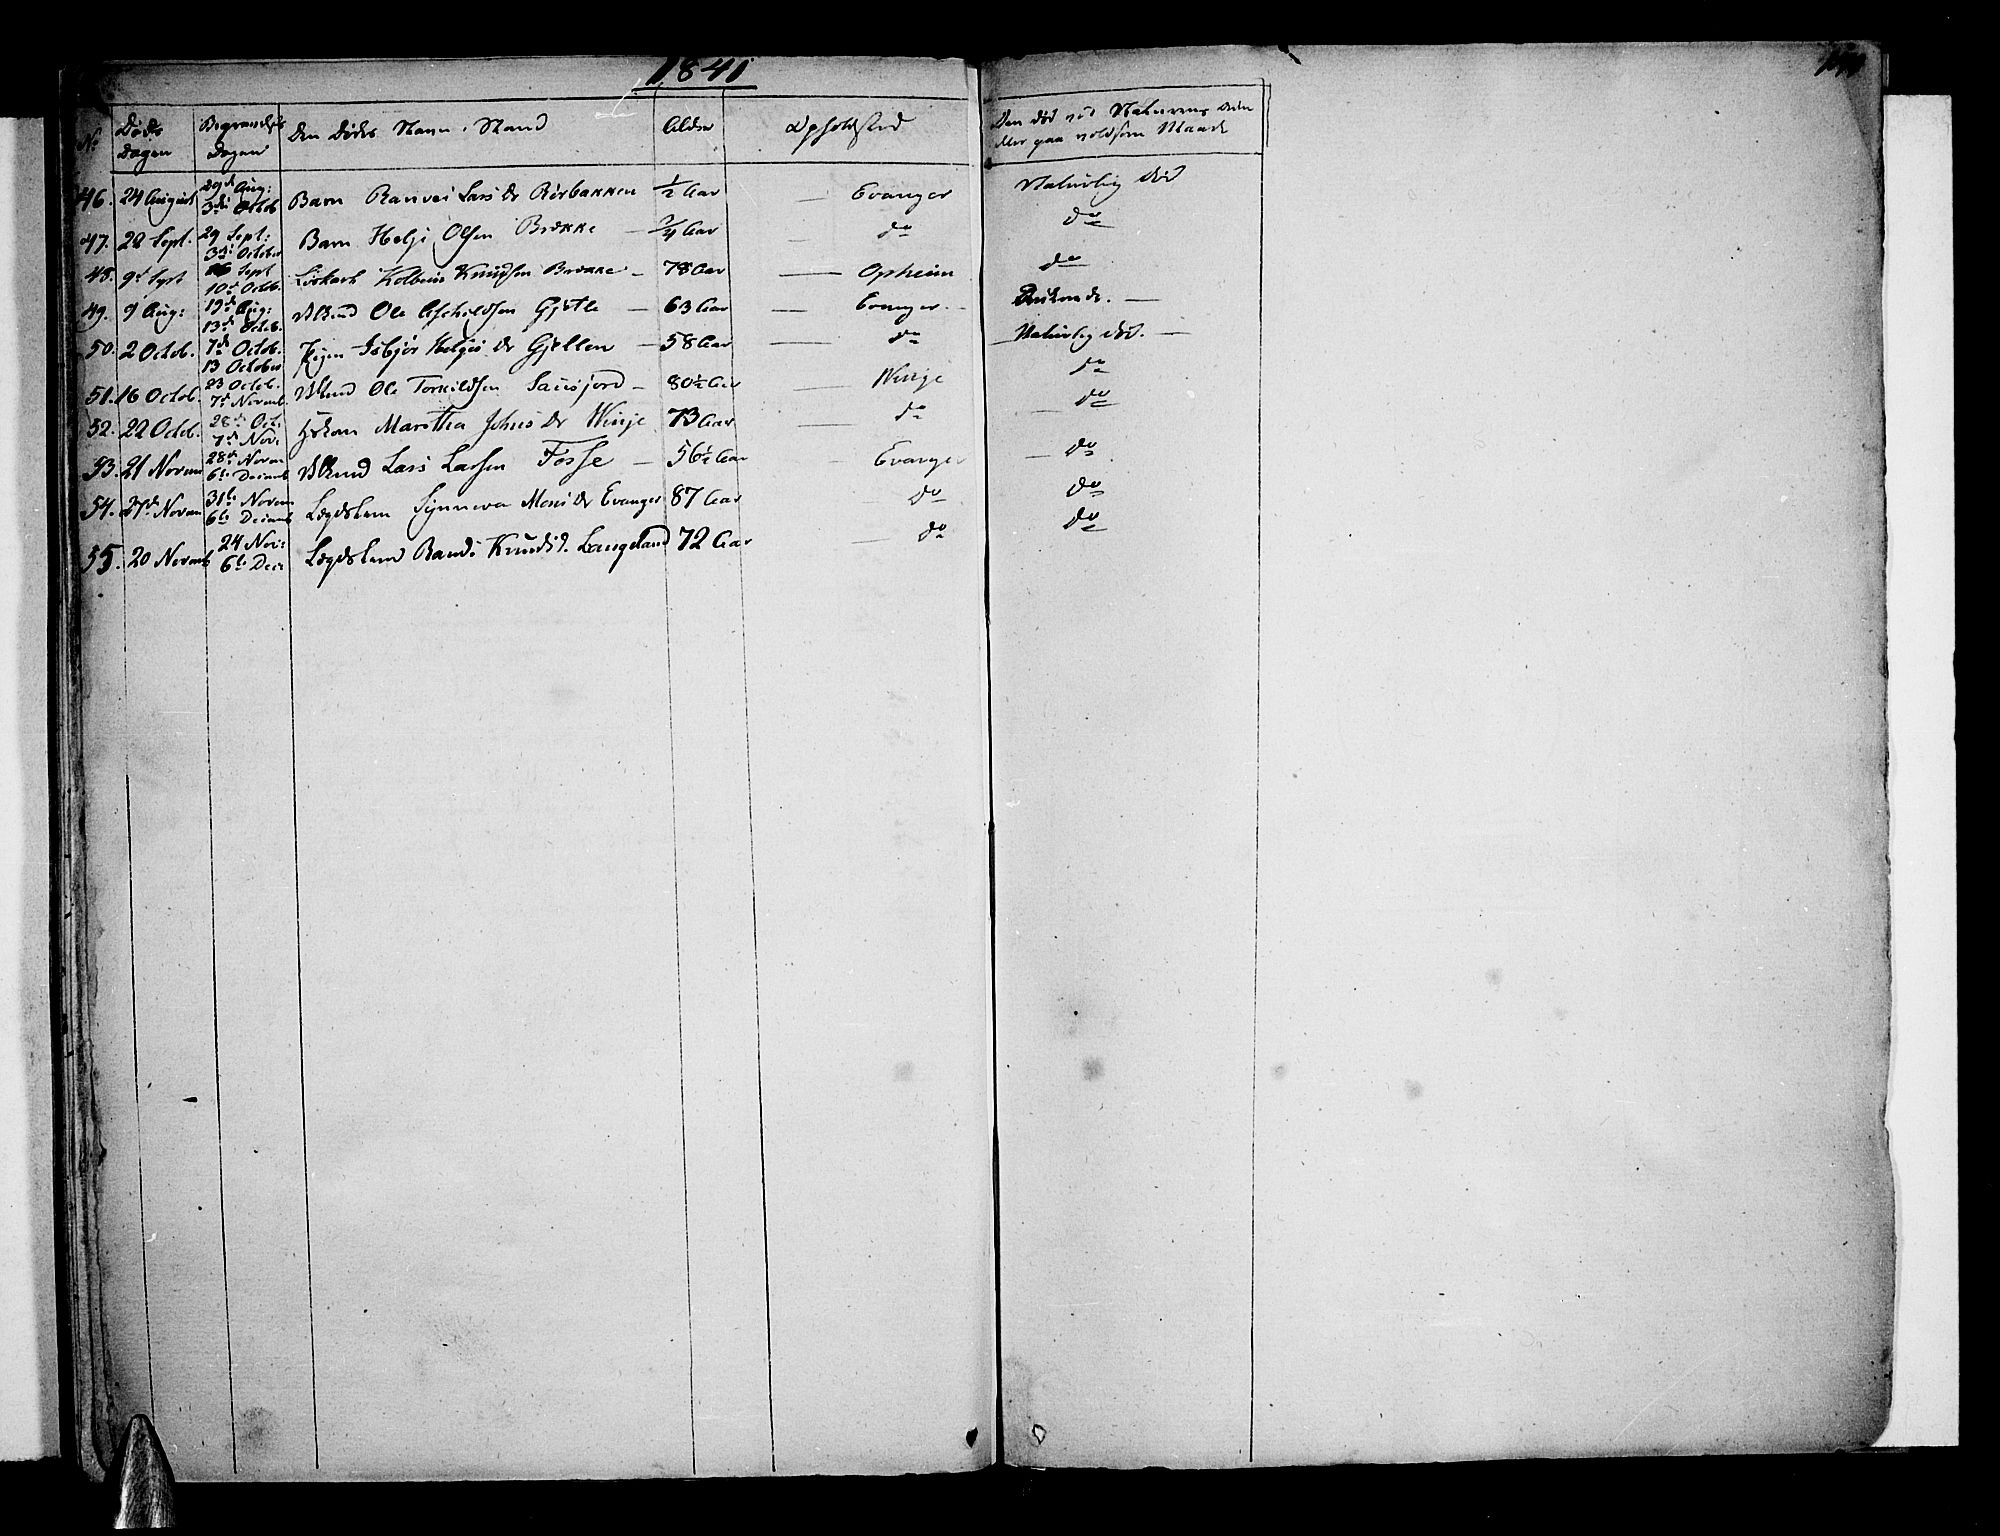 1841
No Døds Dagen Begravelses Dagen Den Dødes Navn, Stand Alder Opholdsted Den død ved Naturens Orden eller paa voldsom Maade
46. 24 August 29de Aug: 3die Octob Barn Ranvei Lars Dr Rørbakken ½ Aar — Evanger Naturlig Død
47. 28 Sept. 29 Sept: 3die October Barn Helje Olsen Brekke — ¾ Aar — do do
48. 9d Sept 16 Sept 10de Octb. Kolbein Knudsen Brekke — 78 Aar — Opheim do
49. 9 Aug: 19de Aug: 13de Octob. Ole Aschildsen Gjetle — 63 Aar — Evanger —
50. 2 Octob. 7de Octob. 13 October Pigen Isbjør Helges Dr Gjellen — 58 Aar — do Naturlig død. —
51. 16 Octob. 23 Octob. 7de Novemb. Ole Torkildsen Saursjord — 80½ Aar — Winje do
52. 22 Octb. 28de Oct. 7de Nov. Maritha Johns Dr Winje 73 Aar — do — do
53. 21 Novem 28de Novem 6te Decemb Lars Larsen Fosse — 56½ Aar Evanger — do
54. 27de Novem 31te Novem 6te Decemb Lægdslem Synneva Mons Dr Evanger 87 Aar — do do
55. 20 Novemb 24 Nov: 6te Dec: Lægdslem Brandi Knuds d. Langeland 72 Aar — do do